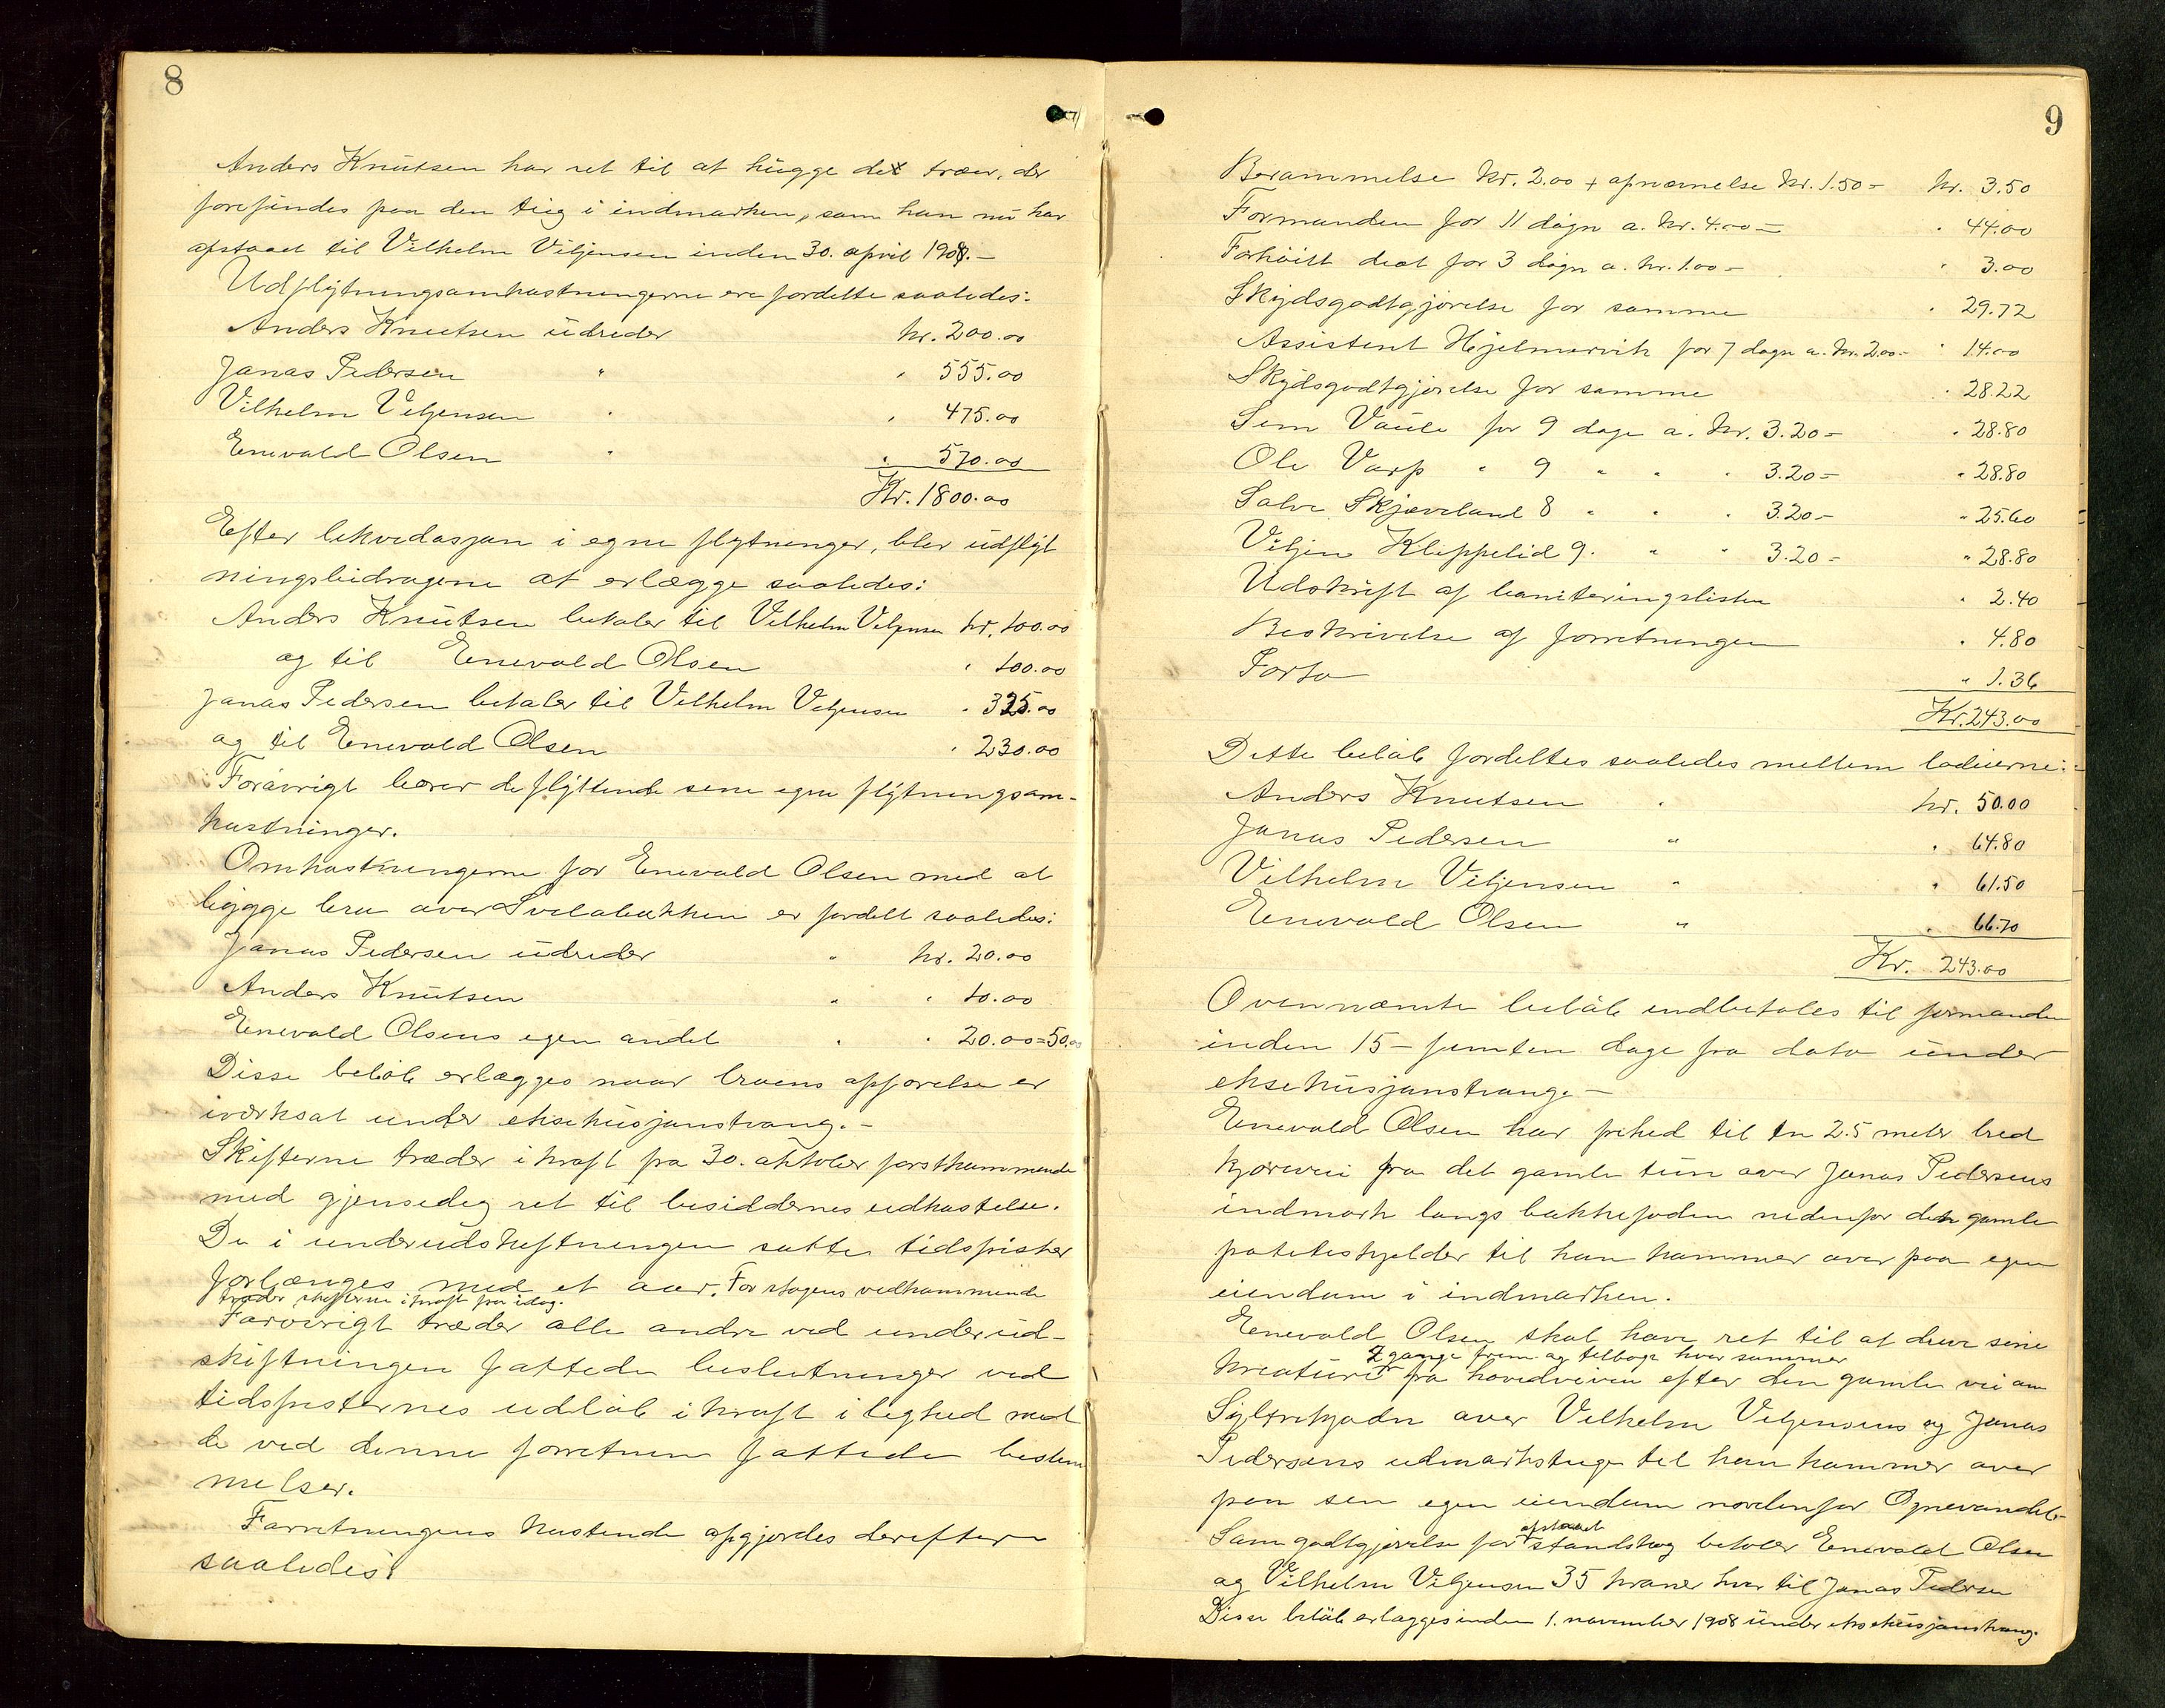 8
Anders Knutsen har ret til at hugge de trær, der
forefindes paa den teig i indmarken, som han nu har
afstaaet til Vilhelm Viljensen inden 30. april 1908.-
Udflytningsomkostningerne ere fordelte saaledes:
Anders Knutsen udreder kr. 200.00
Jonas Pedersen " " 555.00
Vilhelm Viljensen " " 475.00
Enevald Olsen " " 570.00
Kr. 1800.00
Efter likvidasjon i egne flytninger, blir udflyt
ningsbidragene at erlægge saaledes:
Anders Knutsen betaler til Vilhelm Viljensen kr. 100.00
og til Enevald Olsen " 100.00
Jonas Pedersen betaler til Vilhelm Viljensen " 325.00
og til Enevald Olsen " 230.00
Forøvrigt bærer de flyttende sine egne flytningsom-
kostninger.
Omkostningerne for Enevald Olsen med at
bygge bru over Svelabækken er fordelt saaledes:
Jonas Pedersen udreder " kr. 20.00
Anders Knutsen " " 10.00
Enevald Olsens egen andel " " 20.00=50.00
Disse beløb erlægges naar bruens opførelse er
iværksat under eksekusjonstvang.-
Skifterne træder i kraft fra 30. oktober førstkommende
med gjensedig ret til besiddernes udkastelse.
De i underudskiftningen satte tidsfrister
forlænges med et aar. For skogens vedkommende
træder skifterne i kraft fra idag.
Forøvrigt træder alle andre ved underud-
skiftningen fattede beslutninger ved
tidsfristernes udløb i kraft i lighed med
de ved denne forretnin fattede bestem
melser.
Forretningens kostende opgjordes derefter
saaledes:
9
Berammelse kr. 2.00 + opnævnelse kr. 1.50= kr. 3.50
Formanden for 11 døgn a. kr. 4.00= " 44.00
Forhøiet diæt for 3 døgn a. kr. 1.00= " 3.00
Skydsgodtgjørelse for samme " 29.72
Assistent Hjelmervik for 7 døgn a. kr. 2.00= " 14.00
Skydsgodtgjørelse for samme " 28.22
Sem Vaule for 9 dage a. kr. 3.20= " 28.80
Ole Varp " 9 " " " 3.20= " 28.80
Salve Skjæveland 8 " " " 3.20= " 25.60
Viljen Klippelid 9. " " 3.20= " 28.80
Udskrift af boniteringslisten " 2.40
Beskrivelse af forretningen " 4.80
Porto " 1.36
Kr. 243.00
Dette beløb fordeltes saaledes mellem lodeierne:
Anders Knutsen " kr. 50.00
Jonas Pedersen " " 64.80
Vilhelm Viljensen " " 61.50
Enevald Olsen " " 66.70
Kr. 243.00
Ovennævnte beløb indbetales til formanden
inden 15 – femten dage fra dato under
eksekusjonstvang.-
Enevald Olsen har frihed til en 2.5 meter bred
kjørevei fra det gamle tun over Jonas Pedersens
indmark langs bakkefoden nedenfor den gamle
poteteskjelder til han kommer over paa egen
eiendom i indmarken.
Enevald Olsen skal have ret til at drive sine
2 gange frem og tilbage hver sommer
kreaturer fra hovedveien efter den gamle vei om
over Vilhelm Viljensens og Jonas
Pedersens udmarksteige til han kommer over
paa sin egen eiendom nordenfor
Som godtgjørelse for afstaaet standskog betaler Enevald Olsen
og Vilhelm Viljensen 35 kroner hver til Jonas Pedersen
Disse beløb erlægges inden 1. november 1908 under eksekusjonstvang.